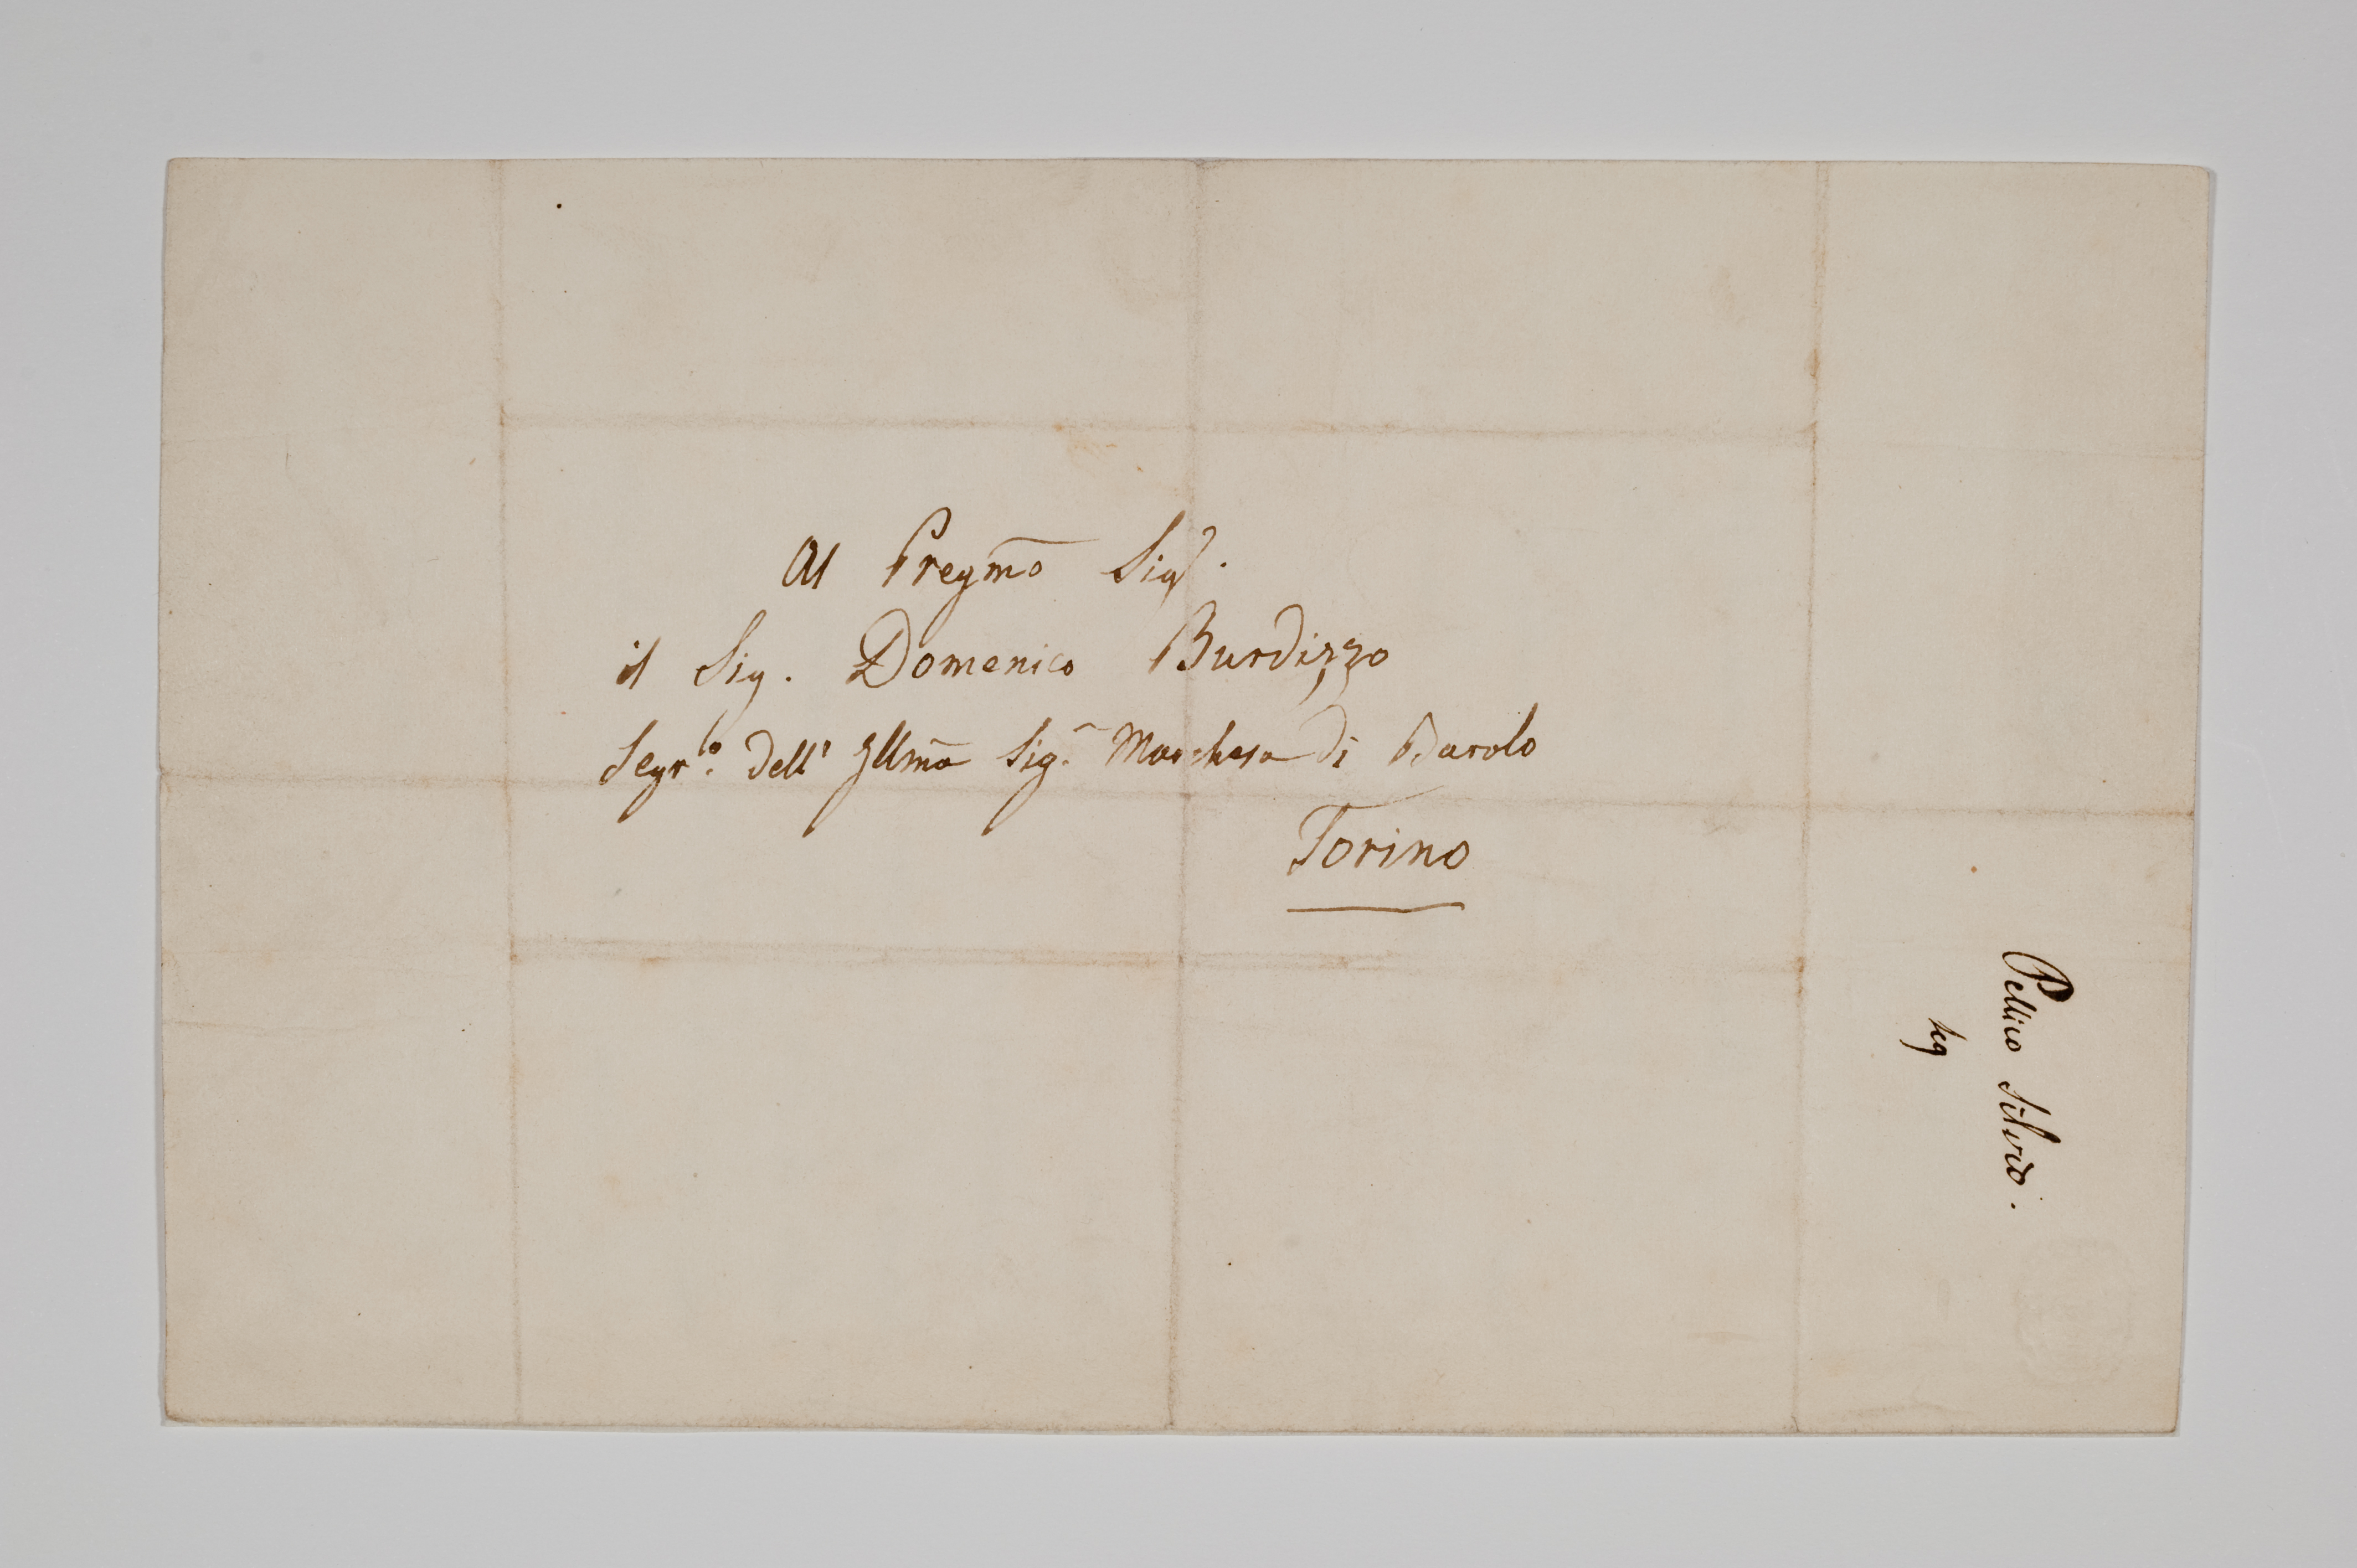 Al Pregmo Sigr.
il Sig. Domenico Burdizzo
Segrio. dell' Illma Sig.a Marchesa di Barolo
Torino
Pellico Silvio.